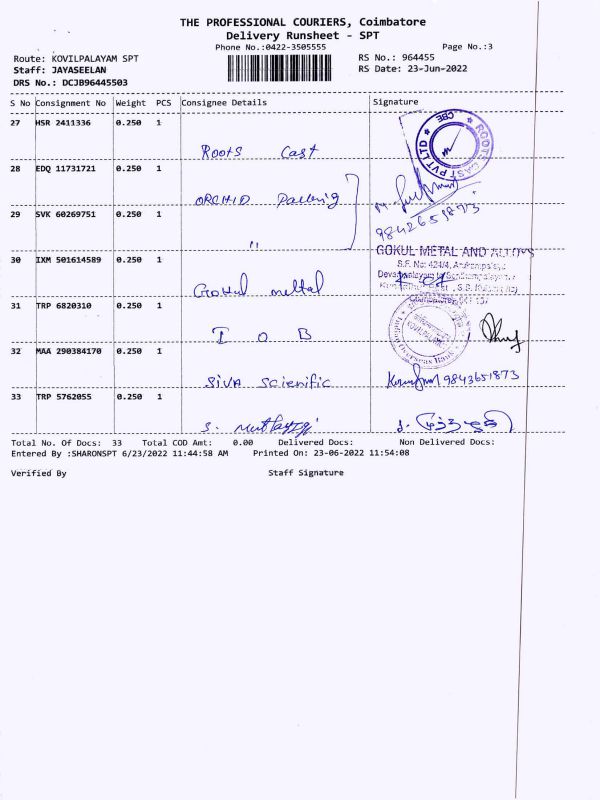 THE PROFESSIONAL COURIERS, Coimbatore
Delivery Runsheet - SPT
Phone No.:0422-3505555 Page No.:3
Route: KOVILPALAYAM SPT RS No.: 964455
Staff: JAYASEELAN RS Date: 23-Jun-2022
DRS No.: DCJB96445503
S No Consignment No Weight PCS Consignee Details Signature
27 HSR 2411336 0.250 1
Roots Cast
ROOTS CAST PVT LTD ★ CBE ★
28 EDQ 11731721 0.250 1
ORCHID
29 SVK 60269751 0.250 1
9842651873
"
30 IXM 501614589 0.250 1
GOKUL METAL AND ALLOYS
S.F. No: 424/4,
Gokul metal
31 TRP 6820310 0.250 1
Indian Overseas Bank
KOVILPALAYAM
I O B
32 MAA 290384170 0.250 1
SIVA Scienific 9843651873
33 TRP 5762055 0.250 1
S.
Total No. Of Docs: 33 Total COD Amt: 0.00 Delivered Docs: Non Delivered Docs:
Entered By :SHARONSPT 6/23/2022 11:44:58 AM Printed On: 23-06-2022 11:54:08
Verified By Staff Signature